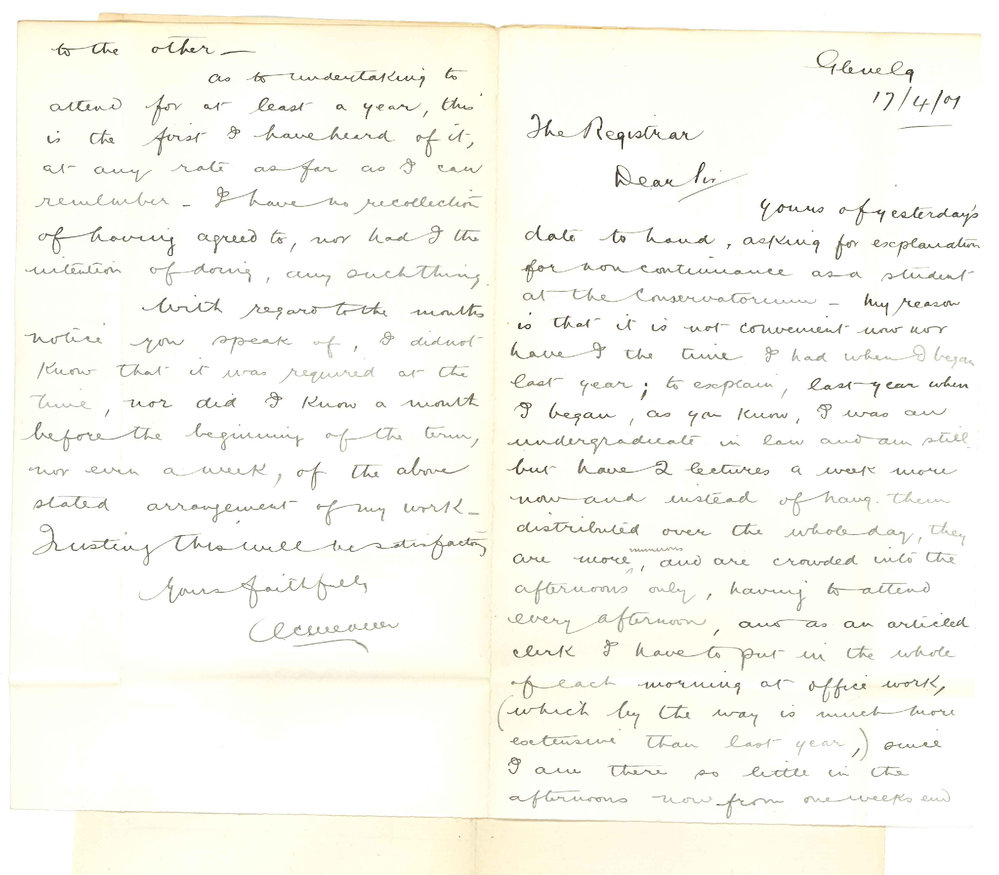 Glenelg
17/4/01
The Registrar
Dear Sir
Yours of yesterday's
date to hand, asking for explanation
for non continuance as a student
at the Conservatorium - My reason
is that it is not convenient now nor
have I the time I had when I began
last year; to explain, last year when
I began, as you know, I was an
undergraduate in law and am still
but have 2 lectures a week more
now and instead of havg. them
distributed over the whole day, they
are more numerous, and are crowded into the
afternoons only, having to attend
every afternoon, and as an articled
clerk I have to put in the whole
of each morning at office work,
(which by the way is much more
extensive than last year,) since
I am there so little in the
afternoons now from one weeks end
to the other -
as to undertaking to
attend for at least a year, this
is the first I have heard of it,
at any rate as far as I can
remember - I have no recollection
of having agreed to, nor had I the
intention of doing, any such thing.
With regard to the months
notice you speak of, I did not
know that it was required at the
time, nor did I know a month
before the beginning of the term,
nor even a week, of the above
stated arrangement of my work -
Trusting this will be satisfactory
Yours faithfully